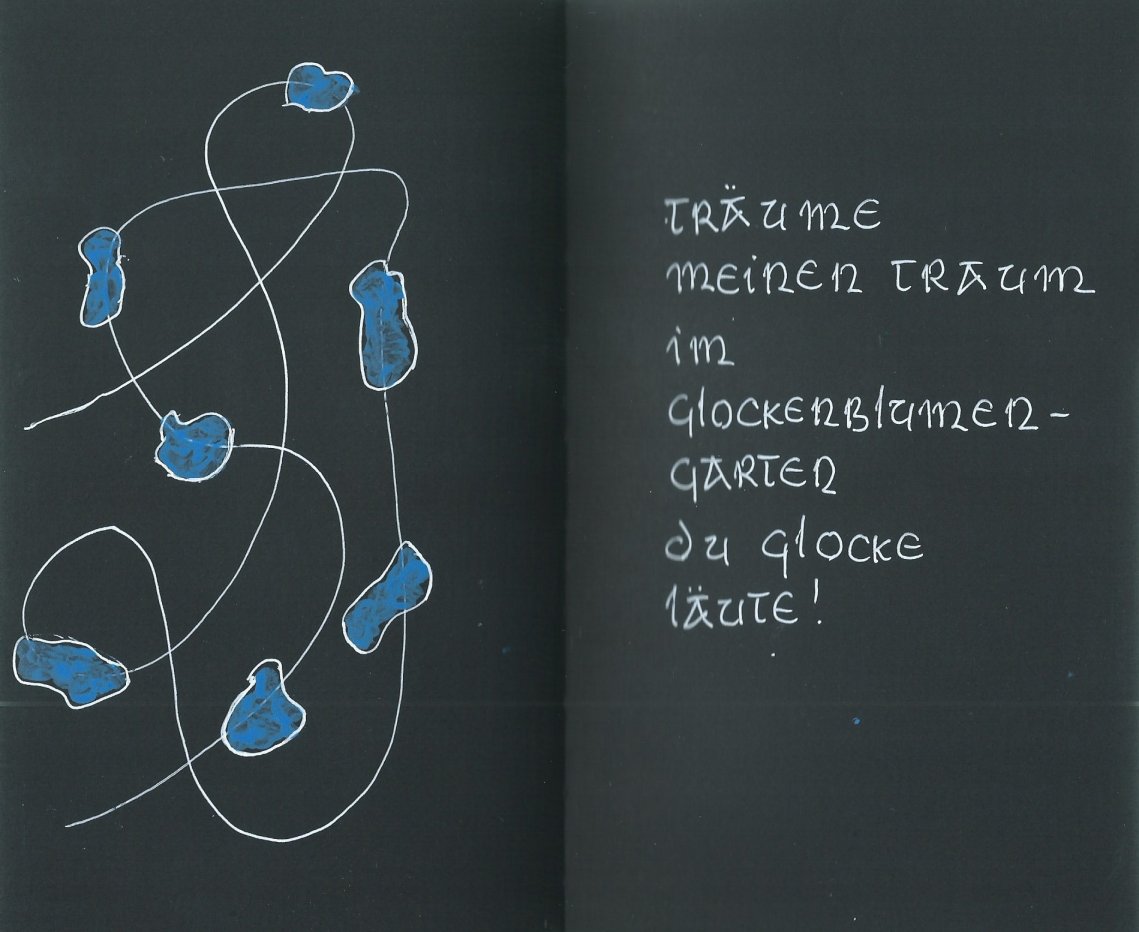 TRÄUME
MEINEN TRAUM
iM
GlOCKENBlUMEN-
GARTEN
du GlOCKE
lÄUTE!